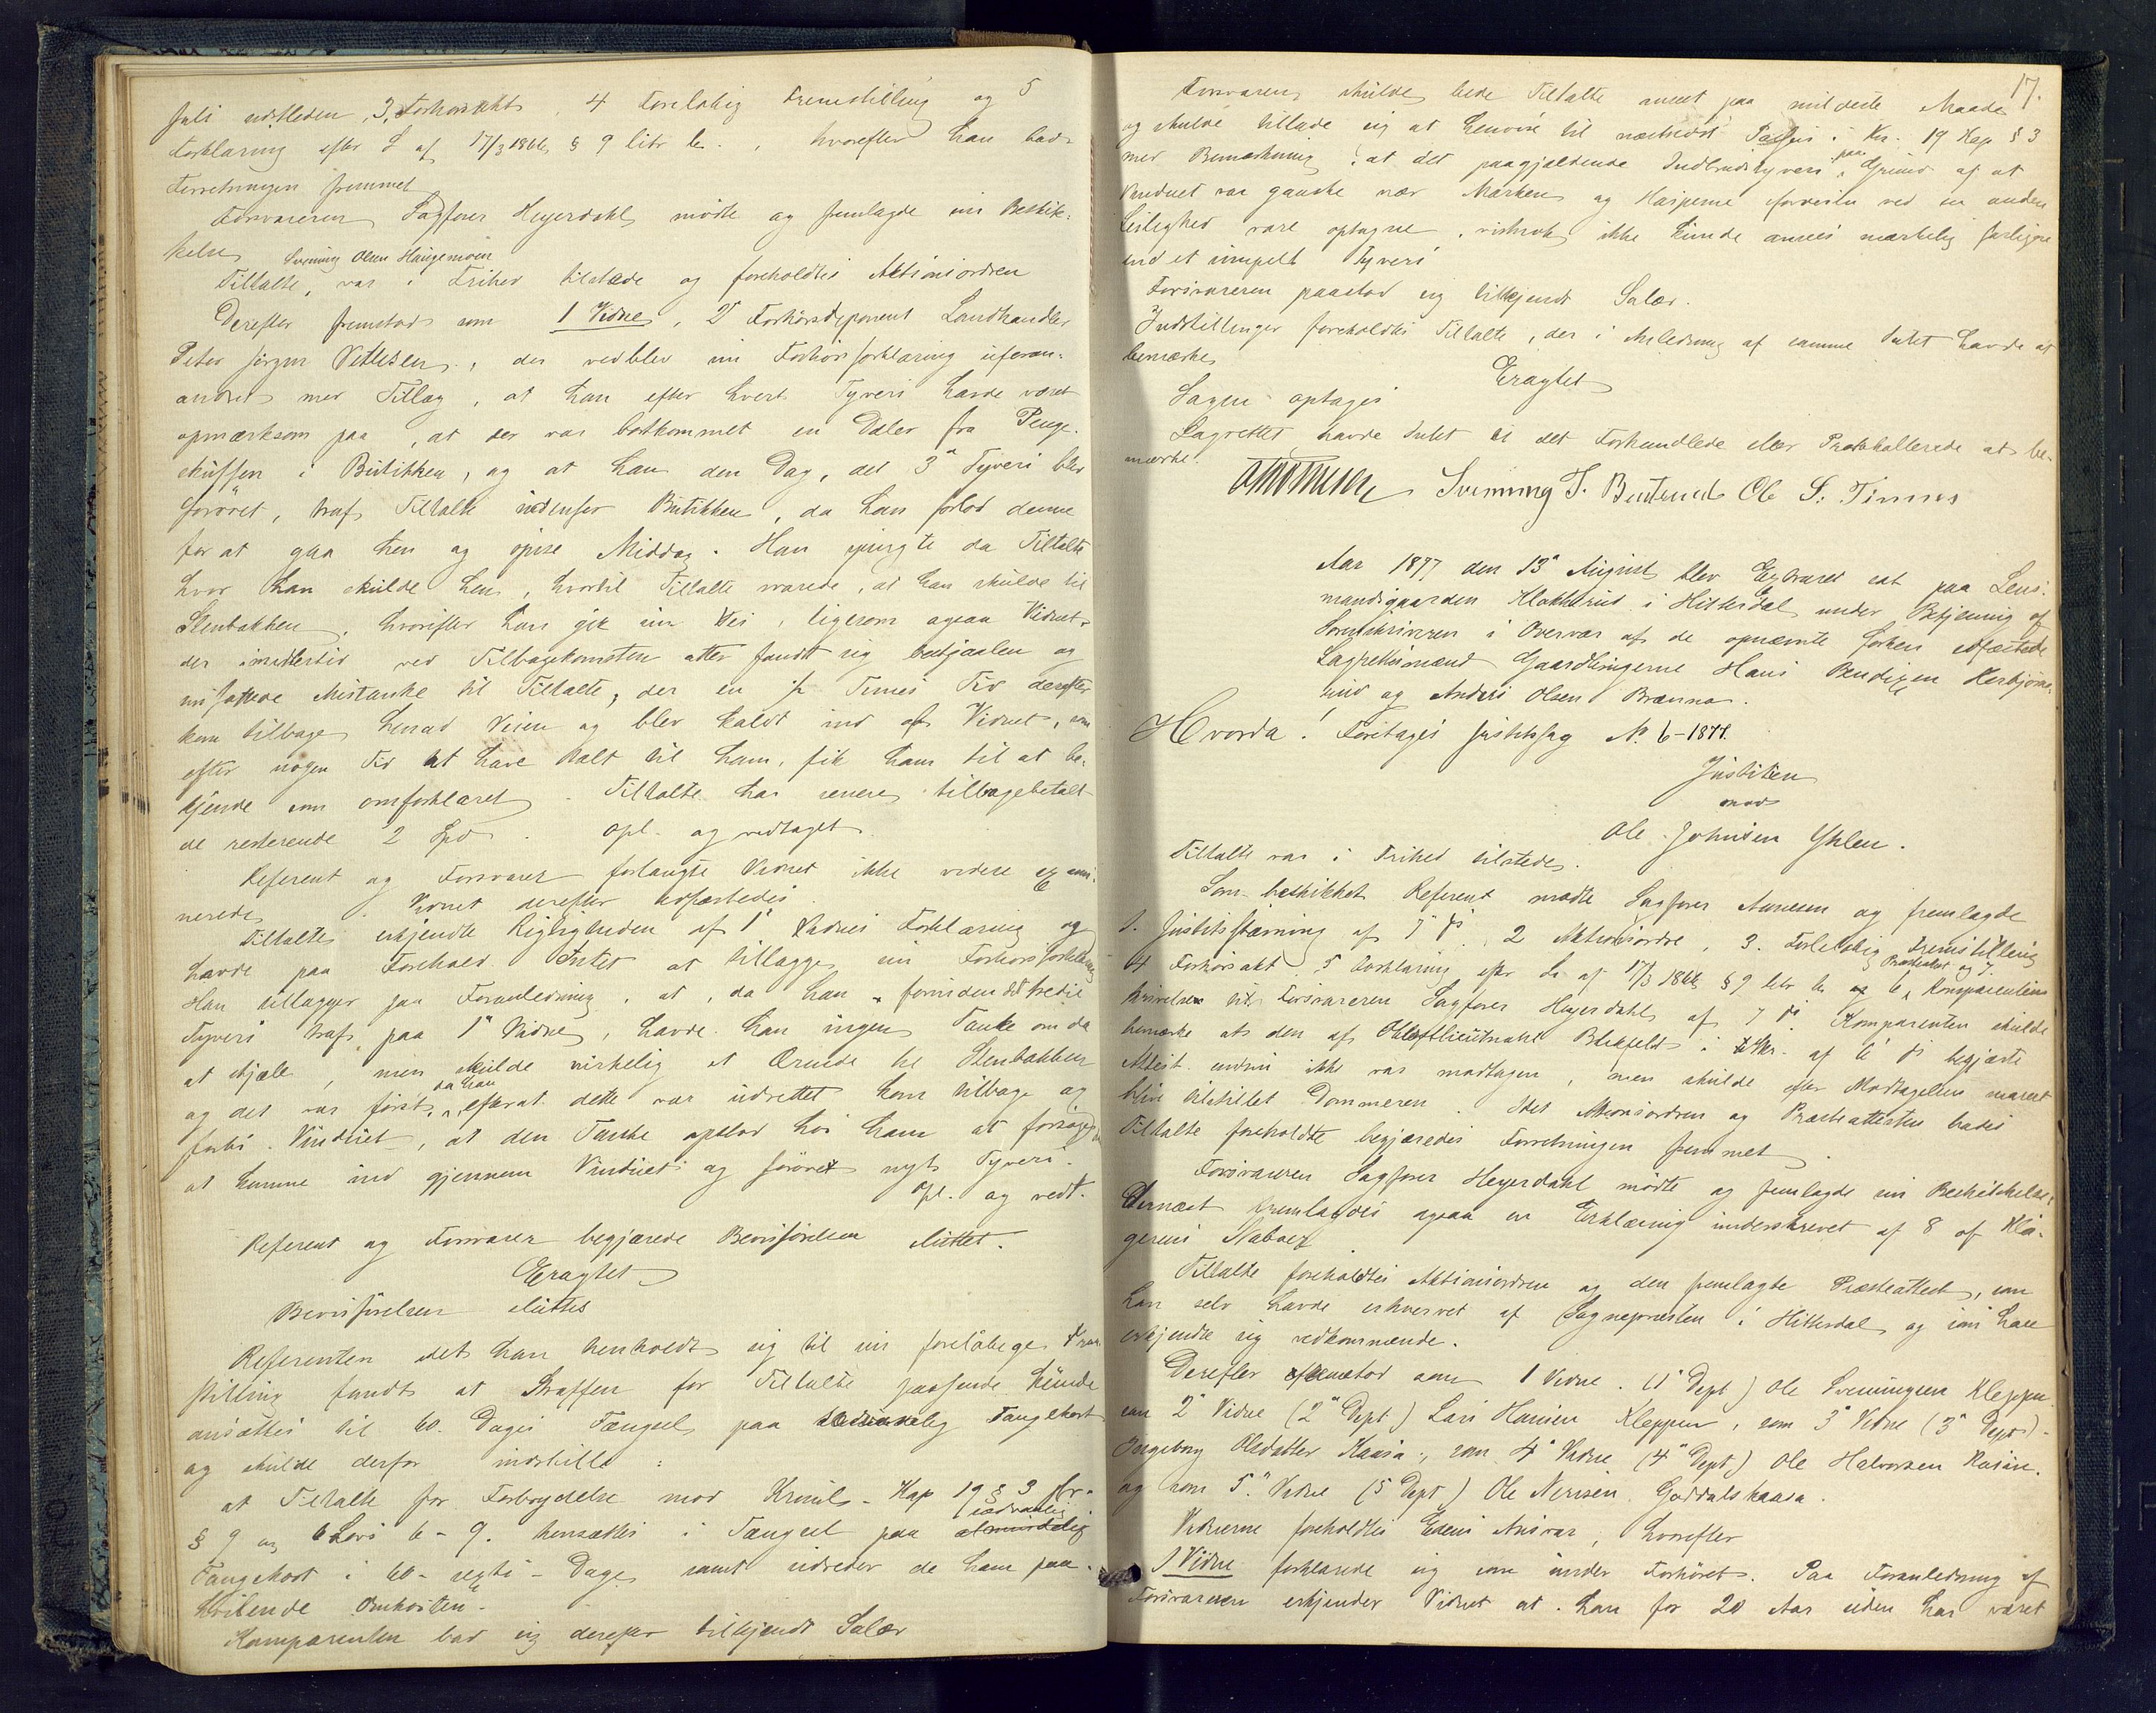 Juli sidstleden, 3, Forhørsakt, 4 Foreløbig Fremstilling og 5
Forklaring efter L af 17/3 1866 § 9 litr b., hvorefter han bad
Forretningen fremmet
Forsvareren Sagfører Heyerdahl mødte og fremlagde sin Beskik-
kelse
Tiltalte, Svening Olsen Haugemoen var i Frihed tilstede og foreholdtes Aktionsordren
Derefter fremstod som 1 Vidne, 2' Forhørsdeponent Landhandler
Peter Jørgen Vetlesen, der vedblev sin Forhørsforklaring uforan-
andret med Tillæg, at han efter hvert Tyveri havde været
opmærksom paa, at der var bortkommet en Daler fra Penge-
skuffen i Butikken, og at han den Dag, det 3' Tyveri blev
forøvet, traf Tiltalte udenfor Butikken, da han forlod denne
for at gaa hen og spise Middag. Han spurgte da Tiltalte
hvor han skulde hen, hvortil Tiltalte svarede, at han skulde til
Stenbakken, hvorefter han gik sin Vei, ligesom ogsaa Vidnet,
der imidlertid ved Tilbagekomsten atter fandt sig bestjaalen og
nu fattede Mistanke til Tiltalte, der en ½ Times Tid derefter
kom tilbage henad Veien og blev kaldt ind af Vidnet, som
efter nogen Tid at have talt til ham, fik ham til at be-
kjende som omforklaret. Tiltalte har senere tilbagebetalt
de resterende 2 Spd. Opl. og vedtaget
Referent og Forsvarer forlangte Vidnet ikke videre exami-
nerede. Vidnet derefter edfæstedes.
Tiltalte erkjendte Rigtigheden af 1' Vidnes Forklaring og
havde paa Forehold Intet at tillægge sin Forhørsforklaring
Han tillægger paa Foranledning, at, da han, forinden det tredie
Tyveri traf paa 1' Vidne, havde han ingen Tanke om da
at stjæle, men skulde virkelig et Ærinde til Stenbakken
og det var først, da han efterat dette var udrettet kom tilbage og
forbi Vinduet, at den Tanke opstod hos ham at forsøge
at komme ind gjennem Vinduet og forøve nyt Tyveri.
Opl. og vedt.
Referent og Forsvarer begjærede Bevisførelsen sluttet.
Eragtet
Bevisførelsen sluttes
Referenten idet han henholdt sig til sin foreløbige Frem-
stilling fandt at Straffen for Tiltalte passende kunde
ansættes til 60 Dages Fængsel paa sædvanlig Fangekost
og skulde derfor indstille:
at Tiltalte for Forbrydelse mod Krimls. Kap 19 § 3 jfr.
§ 9 og 6 Kaps 6 - 9. hensættes i Fængsel paa sædvanlig
Fangekost i 60 - sexti - Dage samt udreder de ham paa-
hvilende Omkosten.
Komparenten bad sig derefter tilkjendt Salær
17.
Forsvareren skulde bede Tiltalte anseet paa mildeste Maade
og skulde tillade sig at henvise til næstsidst Passus i Kr. 19 Kap § 3
med Bemærkning, at det paagjældende Indbrudstyveri paa Grund af at
Vinduet var ganske nær Marken og Hasperne forinden ved en anden
Leilighed vare optagne, vistnok ikke kunde ansees mærkelig farligere
end et simpelt Tyveri
Forsvareren paastod sig tilkjendt Salær.
Indstillinger foreholdtes Tiltalte, der i Anledning af samme Intet havde at
bemærke
Eragtet
Sagen optages
Lagrettet havde Intet ved det Forhandlede eller Protokollerede at be-
mærke.
Svenning T. Bentsrud Ole S. Tinnes
Aar 1877 den 13' August blev Extraret sat paa Lens-
mandsgaarden Klokkerud i Hitterdal under Betjening af
Sorenskriveren i Overvær af de opnævnte forhen edfæstede
Lagrettesmænd Gaardbrugerne Hans Bendixen Herbjørns-
rud og Anders Olsen Brænna.
Hvorda! Foretoges Justitssag No. 6-1877.
Justitien
mod
Ole Johnsen Yhlen.
Tiltalte var i Frihed tilstede.
Som beskikket Referent mødte Sagfører Aanesen og fremlagde
1. Justitsstævning af 7' ds. 2 Aktionsordre, 3. Foreløbig Fremstilling
4 Forhørsakt. 5 Forklaring efter L. af 17/3 1866 § 9 litr b. og 6, Præsteattest og 7. Komparentens
Skrivelse til Forsvareren Sagfører Heyerdahl af 7 ds. Komparenten skulde
bemærke at den af Oberstlieutnant Blekfeldt i Skr. af 6' ds begjærte
Attest endnu ikke var modtagen, men skulde efter Modtagelsen snarest
blive tilstillet Dommeren. Idet Aktionsordren og Præsteattesten bades
Tiltalte foreholdte begjæredes Forretningen fremmet.
Forsvareren Sagfører Heyerdahl mødte og fremlagde sin Beskikkelse,
Dernæst fremlagdes ogsaa en Erklæring underskrevet af 8 af Kla-
gerens Naboer
Tiltalte foreholdtes Aktionsordren og den fremlagte Præsteattest, som
han selv havde erhvervet af Sognepræsten i Hitterdal og som han
erkjendte sig vedkommende.
Derefter fremstod som 1 Vidne. (1' Dept) Ole Svenningsen Kleppen
som 2' Vidne (2' Dept.) Lars Hansen Kleppen, som 3' Vidne (3' Dept) -
Ingeborg Olsdatter Kaasa, som 4' Vidne (4' Dept) Ole Halvorsen Kasin.
og som 5.' Vidne (5 Dept) Ole Nerisen Goddalskaasa.
Vidnerne foreholdtes Edens Ansvar, hvorefter
1 Vidne forklarede sig som under Forhøret. Paa Foranledning af
Forsvareren erkjender Vidnet at han for 20 Aar siden har været